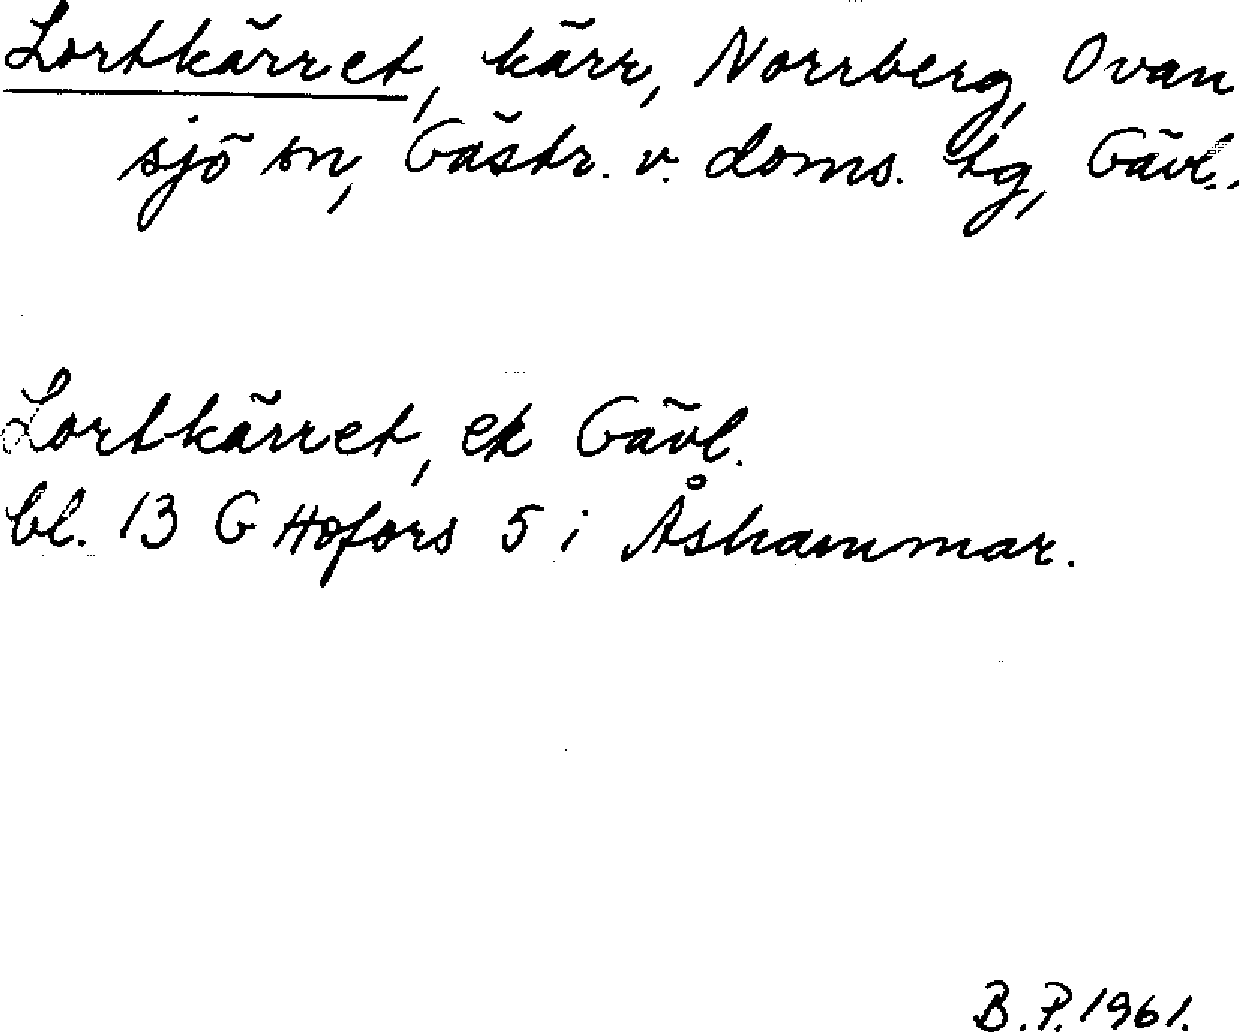 Lortkärret, kärr, Norrberg, Ovan
sjö sn, Gästr. v. doms. tg, Gävl.
Lortkärret, ek Gävl.
bl. 13 G Hofors 5 i Åshammar.
B.P. 1961.